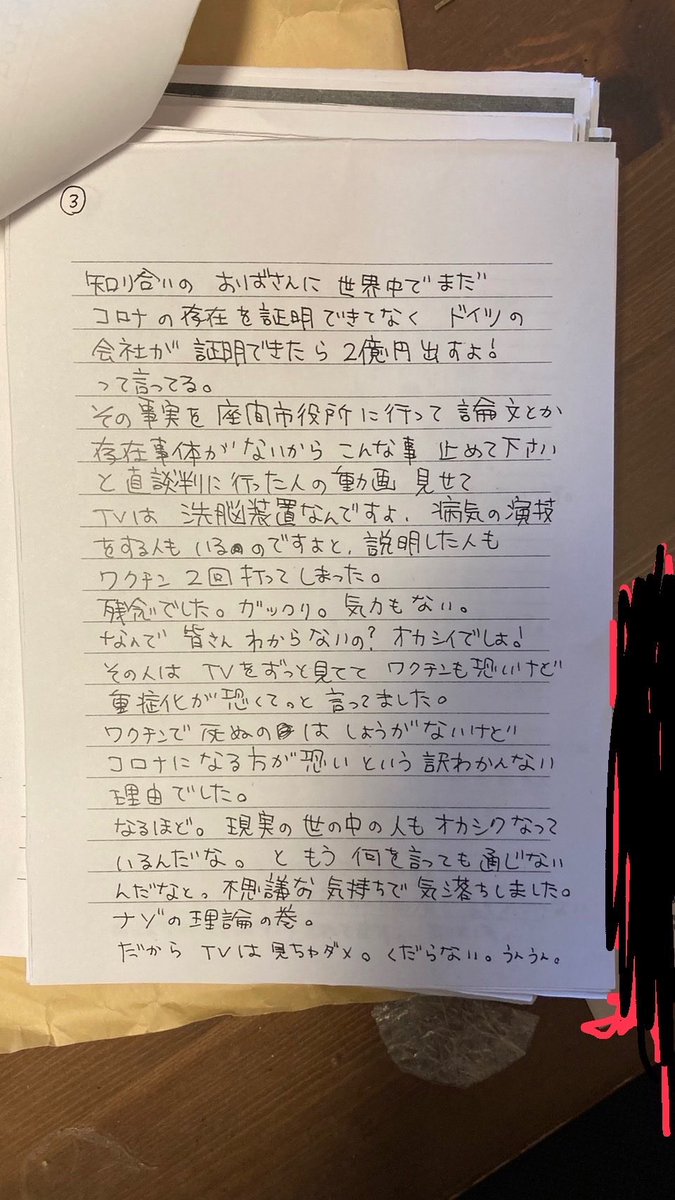 ③
知り合いの おばさんに 世界中で まだ
コロナの存在を証明できてなく ドイツの
会社が 証明できたら 2億円出すよ!
って言ってる。
その事実を座間市役所に行って 論文とか
存在事体がないから こんな事 止めて下さい
と直談判に行った人の動画 見せて
TVは 洗脳装置なんですよ、病気の演技
をする人も いるのですよと、説明した人も
ワクチン 2回打ってしまった。
残念でした。ガックリ。気力もない。
なんで 皆さん わからないの?オカシイでしょ!
その人は TVをずっと見てて ワクチンも恐いけど
重症化が恐くてっと 言ってました。
ワクチンで 死ぬのは しょうがないけど
コロナになる方が恐い という 訳わかんない
理由でした。
なるほど。現実の世の中の人もオカシクなって
いるんだな。と もう 何を言っても通じない
んだなとっ 不思議な 気持ちで 気落ちしました。
ナゾの理論の巻。
だから TVは見ちゃダメ。くだらない。うんうん。